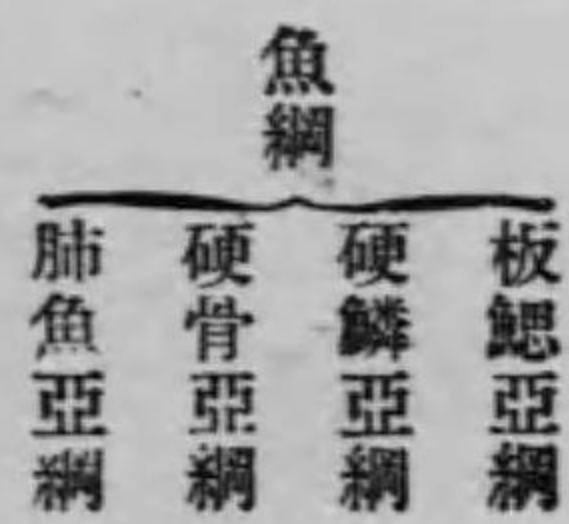 魚綱
板鰓亞綱
硬鱗亞綱
硬骨亞綱
肺魚亞綱